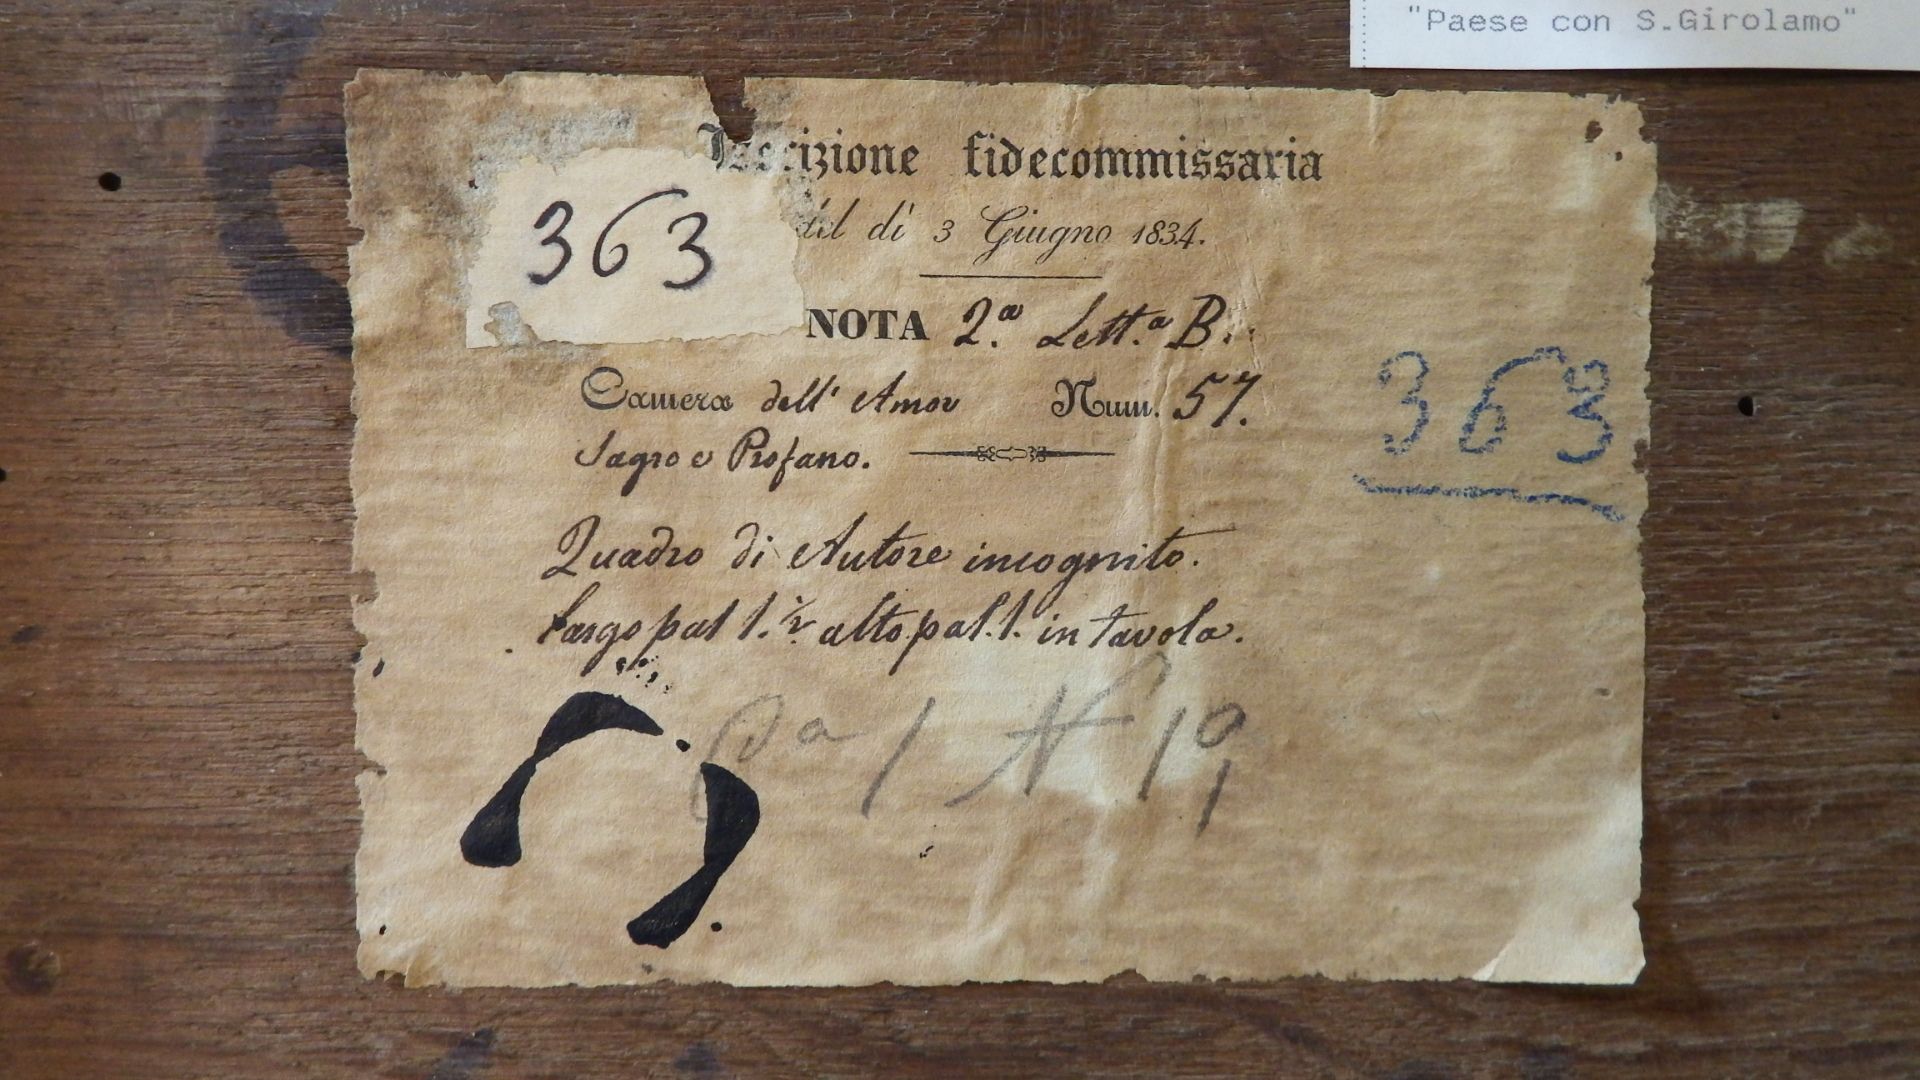 "Paese con S.Girolamo"
Iscrizione fidecommissaria
363
del dì 3 Giugno 1834.
NOTA 2.a Lett.a B.
Camera dell' Amor Num. 57.
Sagro e Profano.
363
Quadro di Autore incognito.
Largo pal 1.½ alto pal. 1. in tavola.